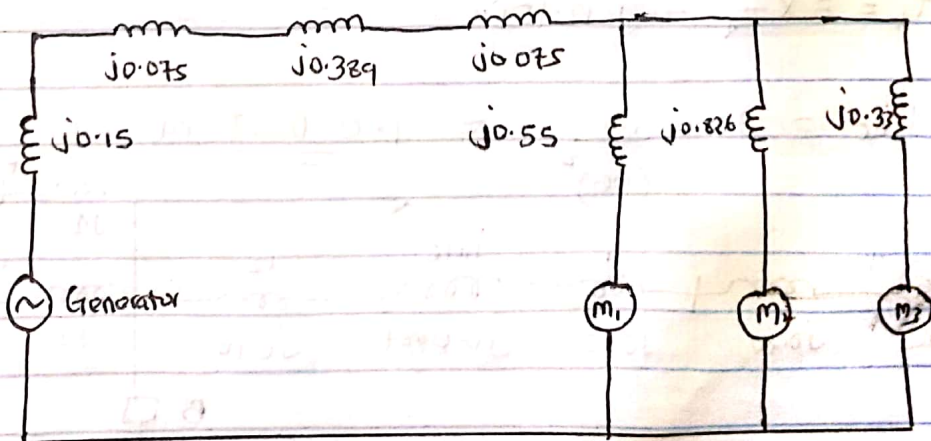 j0.075 j0.389 j0.075
j0.15 j0.55 j0.826 j0.33
~ Generator M₁ M₂ M₃